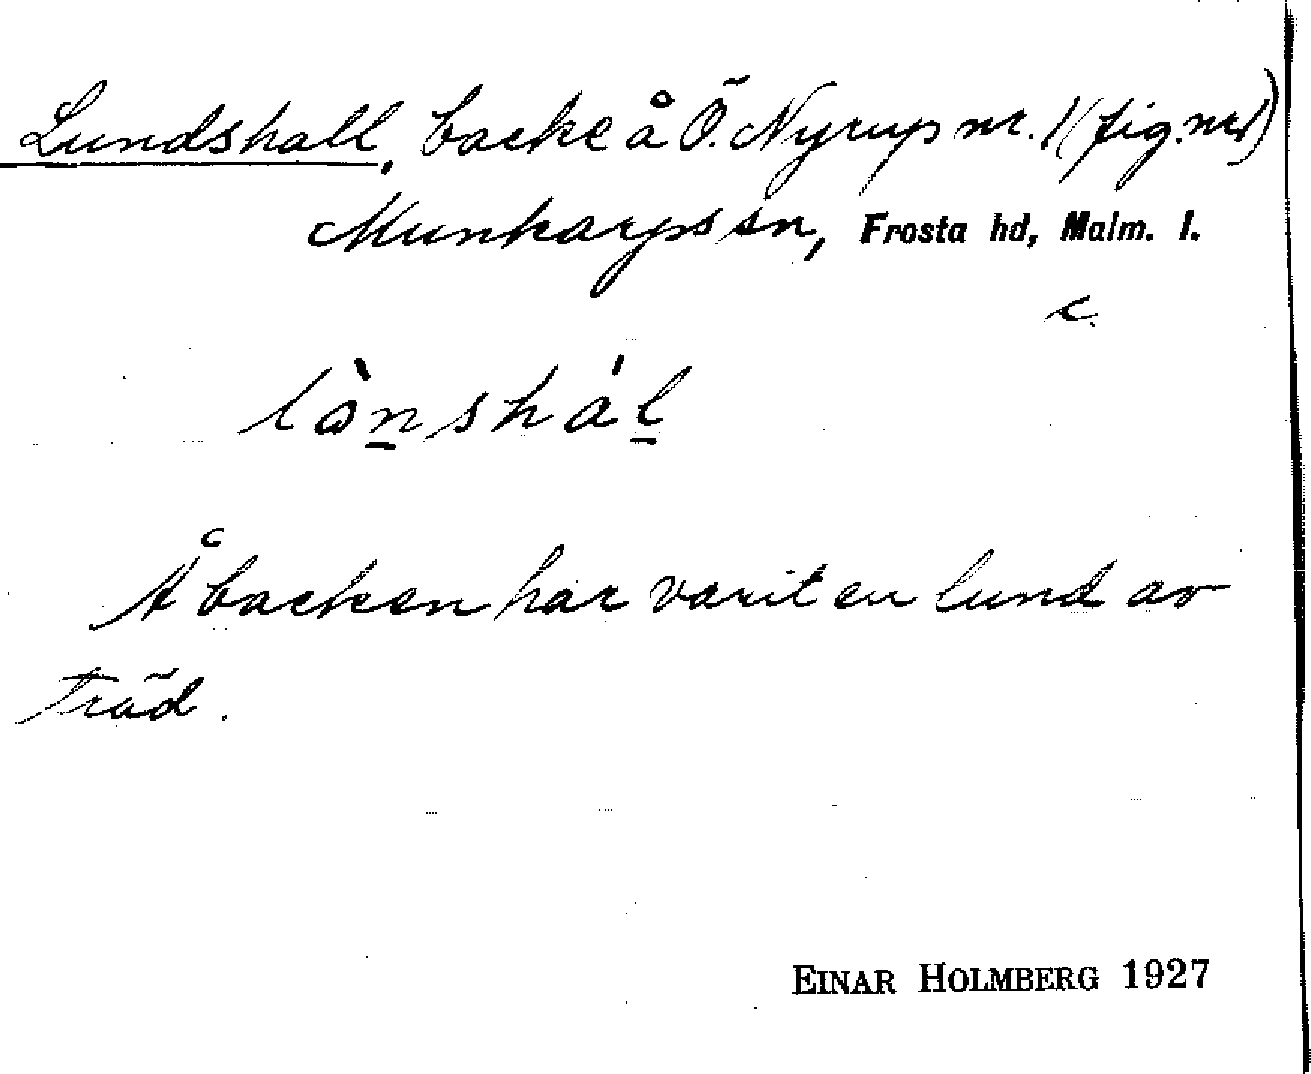 Lundshall, backe å Ö. Nyrup nr. 1 (fig. nr 1)
Munkarps sn, Frosta hd, Malm. l.
c.
lànshál
Å backen har varit en lund av
träd.
EINAR HOLMBERG 1927